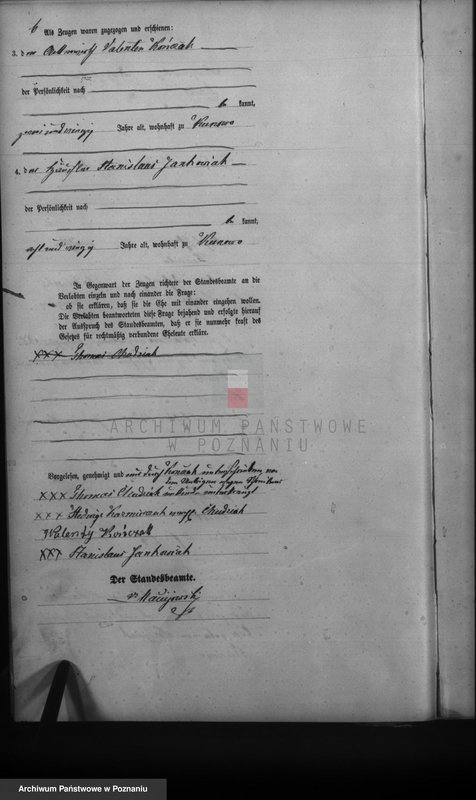 6
Als Zeugen waren zugezogen und erschienen:
3. der Valentin Kończak
der Persönlichkeit nach
be kannt,
zwei und vierzig Jahre alt, wohnhaft zu Kunowo
4. der Häusler Stanislaus Jankowiak
der Persönlichkeit nach
be kannt,
acht und vierzig Jahre alt, wohnhaft zu Kunowo
In Gegenwart der Zeugen richtete der Standesbeamte an die
Verlobten einzeln und nach einander die Frage:
ob sie erklären, daß sie die Ehe mit einander eingehen wollen.
Die Verlobten beantworteten diese Frage bejahend und erfolgte hierauf
der Ausspruch des Standesbeamten, daß er sie nunmehr kraft des
Gesetzes für rechtmäßig verbundene Eheleute erkläre.
XXX Thomas Chudziak
ARCHIWUM PAŃSTWOWE
W POZNANIU
Vorgelesen, genehmigt und unterschrieben von
den übrigen wegen
XXX Thomas Chudziak unterkreuzt
XXX Hedwig Kazmierczak Chudziak
Walenty Kończak
XXX Stanislaus Jankowiak
Der Standesbeamte.
Maciejewski
Archiwum Państwowe w Poznaniu